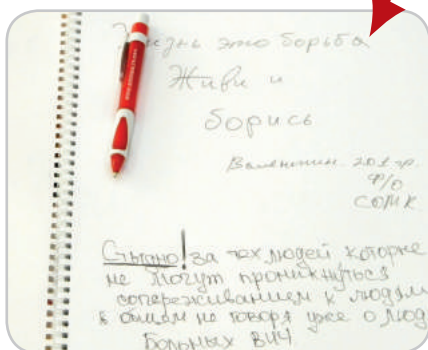 Жизнь это борьба
Живи и
борись
Валентин 201 гр.
Ф/О
СОМК
Стыдно! за тех людей которые
не могут проникнуться
сопереживанием к людям
в общем не говоря уже о люд
больных ВИЧ